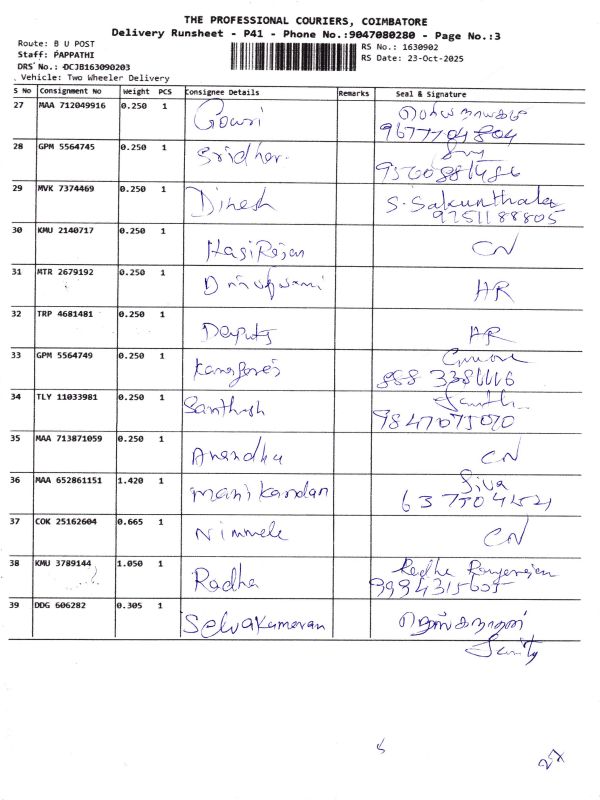 THE PROFESSIONAL COURIERS, COIMBATORE
Delivery Runsheet - P41 - Phone No.:9047080280 - Page No.:3
Route: B U POST
RS No.: 1630902
Staff: PAPPATHI
RS Date: 23-Oct-2025
DRS No.: DCJB163090203
Vehicle: Two Wheeler Delivery
S No Consignment No Weight PCS Consignee Details Remarks Seal & Signature
27 MAA 712049916 0.250 1 Gowri
9677704804
28 GPM 5564745 0.250 1 Sridhar.
29 MVK 7374469 0.250 1 Dinesh S. Sakunthala
9751188805
30 KMU 2140717 0.250 1 CN
31 MTR 2679192 0.250 1 AR
32 TRP 4681481 0.250 1 Deputy AR
33 GPM 5564749 0.250 1
34 TLY 11033981 0.250 1 Santhosh
9847075070
35 MAA 713871059 0.250 1 Anandhu CN
36 MAA 652861151 1.420 1 Manikandan Siva
37 COK 25162604 0.665 1 Nimmele CN
38 KMU 3789144 1.050 1 Radha Radha
9994315605
39 DDG 606282 0.305 1 Selvakumaran